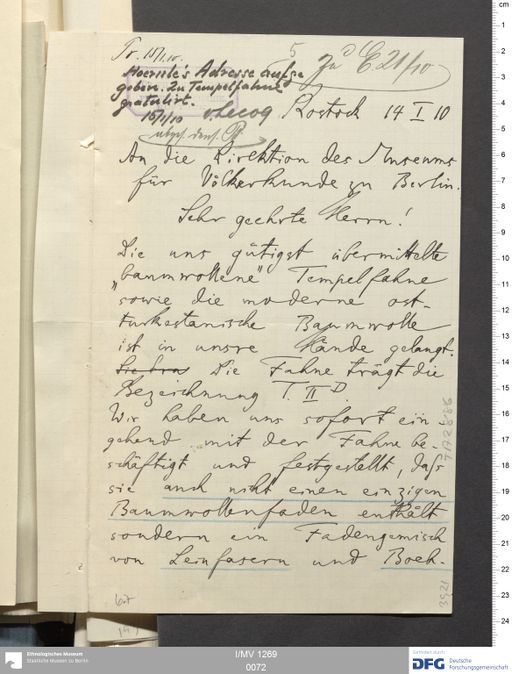 Tr. 15/1.10.
5
zu E. 21/10
Hoernle's Adresse aufge
geben. Zu Tempelfahne
gratulirt.
15/1/10 v. Lecoq.
Rostock 14 I 10
An die Direktion des Museums
für Völkerkunde zu Berlin.
Sehr geehrte Herrn!
Die uns gütigst übermittelte
„baumwollene" Tempelfahne
sowie die moderne ost-
turkestanische Baumwolle
ist in unsre Hände gelangt.
Die Fahne trägt die
Bezeichnung T. II D.
Wir haben uns sofort ein
gehend mit der Fahne be-
schäftigt und festgestellt, daß
sie auch nicht einen einzigen
Baumwollenfaden enthält
sondern ein Fadengemisch
von Leinfasern und Boeh-
3921
Ethnologisches Museum
Staatliche Museen zu Berlin
I/MV 1269
0072
Gefördert durch
DFG Deutsche
Forschungsgemeinschaft
cm
1
2
3
4
5
6
7
8
9
10
11
12
13
14
15
16
17
18
19
20
21
22
23
24